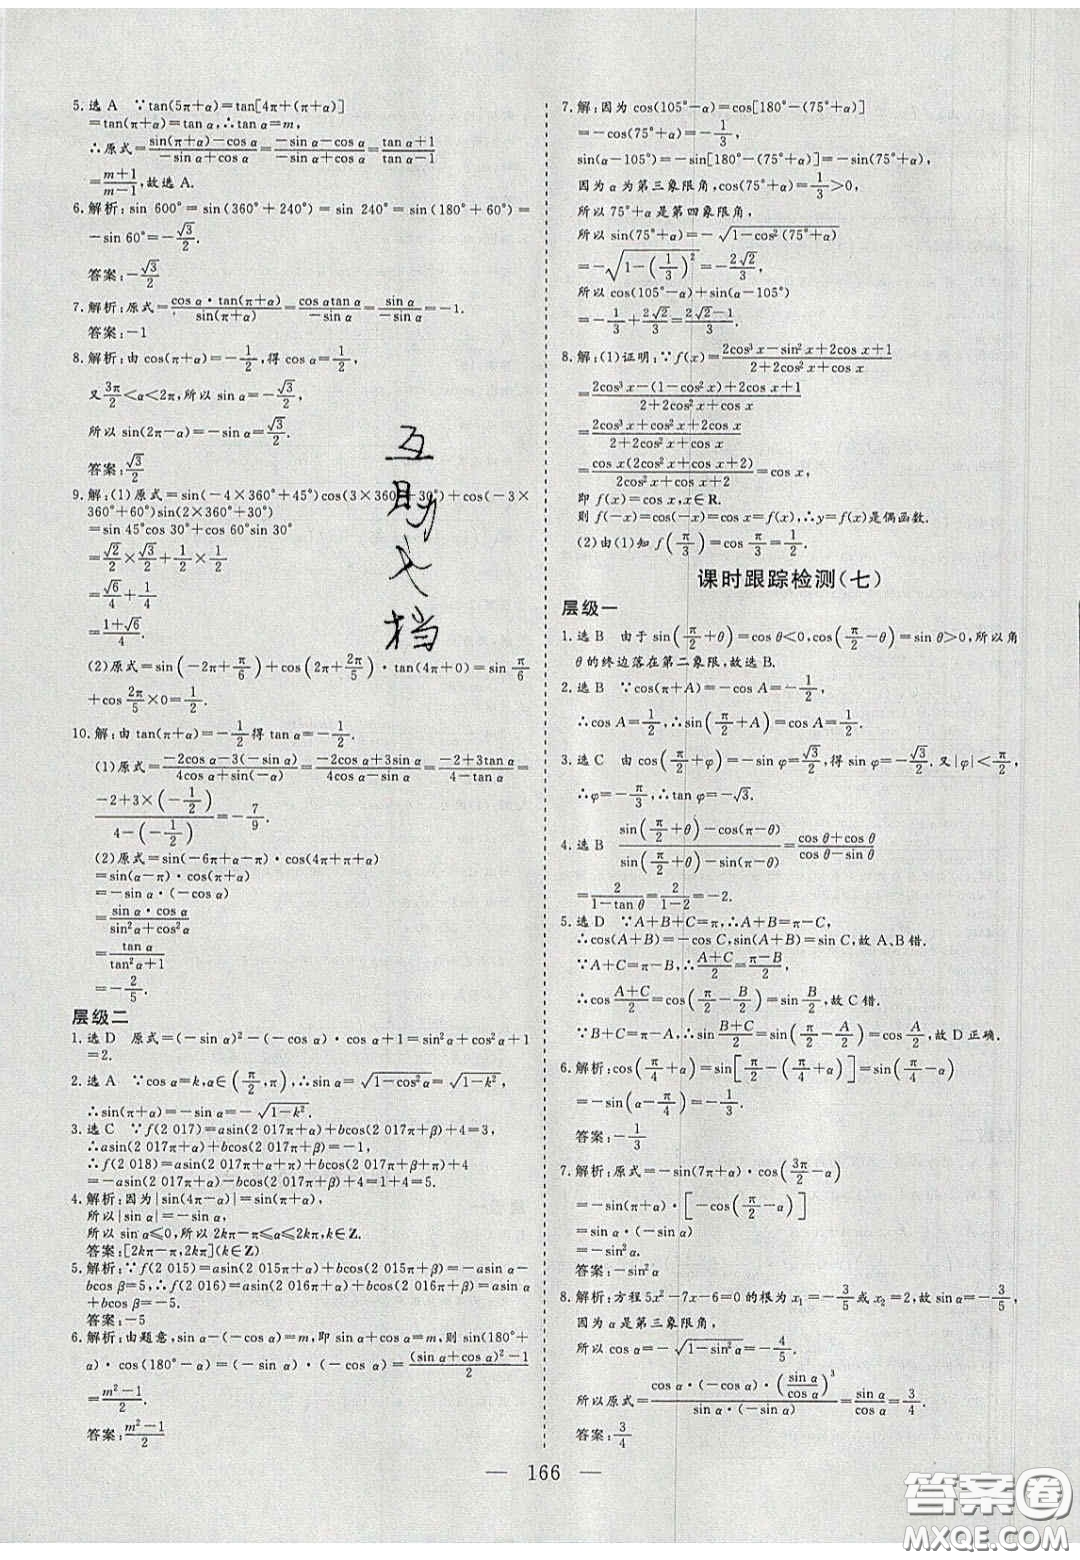 5.选 A ∵tan(5π+α)=tan[4π+(π+α)]
=tan(π+α)=tan α,∴tan α=m,
∴原式=\frac{sin(π+α)-cos α}{-sin α+cos α}=\frac{-sin α-cos α}{-sin α+cos α}=\frac{tan α+1}{tan α-1}
=\frac{m+1}{m-1},故选 A.
6.解析:sin 600°=sin(360°+240°)=sin 240°=sin(180°+60°)=
-sin 60°=-\frac{√3}{2}.
答案:-\frac{√3}{2}
7.解析:原式=\frac{cos α·tan(π+α)}{sin(π+α)}=\frac{cos αtan α}{-sin α}=\frac{sin α}{-sin α}=-1.
答案:-1
8.解析:由 cos(π+α)=-\frac{1}{2},得 cos α=\frac{1}{2},
又\frac{3π}{2}<α<2π,所以 sin α=-\frac{√3}{2},
所以 sin(2π-α)=-sin α=\frac{√3}{2}.
答案:\frac{√3}{2}
9.解:(1)原式=sin(-4×360°+45°)cos(3×360°+30°)+cos(-3×
360°+60°)sin(2×360°+30°)
=sin 45°cos 30°+cos 60°sin 30°
=\frac{√2}{2}×\frac{√3}{2}+\frac{1}{2}×\frac{1}{2}
=\frac{√6}{4}+\frac{1}{4}
=\frac{1+√6}{4}.
(2)原式=sin(-2π+\frac{π}{6})+cos(2π+\frac{2π}{5})·tan(4π+0)=sin\frac{π}{6}
+cos\frac{2π}{5}×0=\frac{1}{2}.
10.解:由 tan(π+α)=-\frac{1}{2}得 tan α=-\frac{1}{2}.
(1)原式=\frac{-2cos α-3(-sin α)}{4cos α+sin(-α)}=\frac{-2cos α+3sin α}{4cos α-sin α}=\frac{-2+3tan α}{4-tan α}=
\frac{-2+3×(-\frac{1}{2})}{4-(-\frac{1}{2})}=-\frac{7}{9}.
(2)原式=sin(-6π+α-π)·cos(4π+π+α)
=sin(α-π)·cos(π+α)
=-sin α·(-cos α)
=\frac{sin α·cos α}{sin²α+cos²α}
=\frac{tan α}{tan²α+1}
=-\frac{2}{5}.
层级二
1.选 D 原式=(-sin α)²-(-cos α)·cos α+1=sin²α+cos²α+1
=2.
2.选 A ∵cos α=k,α∈(\frac{π}{2},π),∴sin α=√(1-cos²α)=√(1-k²),
∴sin(π+α)=-sin α=-√(1-k²).
3.选 C ∵f(2 017)=asin(2 017π+α)+bcos(2 017π+β)+4=3,
∴asin(2 017π+α)+bcos(2 017π+β)=-1,
∴f(2 018)=asin(2 017π+α+π)+bcos(2 017π+β+π)+4
=-asin(2 017π+α)-bcos(2 017π+β)+4=1+4=5.
4.解析:因为|sin(4π-α)|=sin(π+α),
所以|sin α|=-sin α,
所以 sin α≤0,所以 2kπ-π≤α≤2kπ,k∈Z.
答案:[2kπ-π,2kπ](k∈Z)
5.解析:∵f(2 015)=asin(2 015π+α)+bcos(2 015π+β)=-asin α-
bcos β=5,∴f(2 016)=asin(2 016π+α)+bcos(2 016π+β)=asin α
+bcos β=-5.
答案:-5
6.解析:由题意,sin α-(-cos α)=m,即 sin α+cos α=m,则 sin(180°+
α)·cos(180°-α)=(-sin α)·(-cos α)=\frac{(sin α+cos α)²-1}{2}
=\frac{m²-1}{2}.
答案:\frac{m²-1}{2}
7.解:因为 cos(105°-α)=cos[180°-(75°+α)]
=-cos(75°+α)=-\frac{1}{3},
sin(α-105°)=-sin[180°-(75°+α)]=-sin(75°+α),
因为 α 为第三象限角,cos(75°+α)=\frac{1}{3}>0,
所以 75°+α 是第四象限角,
所以 sin(75°+α)=-√(1-cos²(75°+α))
=-√(1-(\frac{1}{3})²)=-\frac{2√2}{3},
所以 cos(105°-α)+sin(α-105°)
=-\frac{1}{3}+\frac{2√2}{3}=\frac{2√2-1}{3}.
8.解:(1)证明:∵f(x)=\frac{2cos³x-sin²x+2cos x+1}{2+2cos²x+cos x}
=\frac{2cos³x-(1-cos²x)+2cos x+1}{2+2cos²x+cos x}
=\frac{2cos³x+cos²x+2cos x}{2+2cos²x+cos x}
=\frac{cos x(2cos²x+cos x+2)}{2cos²x+cos x+2}=cos x,
即 f(x)=cos x,x∈R.
则 f(-x)=cos(-x)=cos x=f(x),∴y=f(x)是偶函数.
(2)由(1)知 f(\frac{π}{3})=cos\frac{π}{3}=\frac{1}{2}.
课时跟踪检测(七)
层级一
1.选 B 由于 sin(\frac{π}{2}+θ)=cos θ<0,cos(\frac{π}{2}-θ)=sin θ>0,所以角
θ 的终边落在第二象限,故选 B.
2.选 B ∵cos(π+A)=-cos A=-\frac{1}{2},
∴cos A=\frac{1}{2},∴sin(\frac{π}{2}+A)=cos A=\frac{1}{2}.
3.选 C 由 cos(\frac{π}{2}+φ)=-sin φ=\frac{√3}{2},得 sin φ=-\frac{√3}{2}.又|φ|<\frac{π}{2},
∴φ=-\frac{π}{3},∴tan φ=-√3.
4.选 B \frac{sin(\frac{π}{2}+θ)-cos(π-θ)}{sin(\frac{π}{2}+θ)-sin(π-θ)}=\frac{cos θ+cos θ}{cos θ-sin θ}
=\frac{2}{1-tan θ}=\frac{2}{1-2}=-2.
5.选 D ∵A+B+C=π,∴A+B=π-C,
∴cos(A+B)=-cos C,sin(A+B)=sin C,故 A、B 错.
∵A+C=π-B,∴\frac{A+C}{2}=\frac{π-B}{2},
∴cos\frac{A+C}{2}=cos(\frac{π}{2}-\frac{B}{2})=sin\frac{B}{2},故 C 错.
∵B+C=π-A,∴sin\frac{B+C}{2}=sin(\frac{π}{2}-\frac{A}{2})=cos\frac{A}{2},故 D 正确.
6.解析:cos(\frac{π}{4}+α)=sin[\frac{π}{2}-(\frac{π}{4}+α)]=sin(\frac{π}{4}-α)
=-sin(α-\frac{π}{4})=-\frac{1}{3}.
答案:-\frac{1}{3}
7.解析:原式=-sin(7π+α)·cos(\frac{3π}{2}-α)
=-sin(π+α)·[-cos(\frac{π}{2}-α)]
=sin α·(-sin α)
=-sin²α.
答案:-sin²α
8.解析:方程 5x²-7x-6=0 的根为 x₁=-\frac{3}{5}或 x₂=2,故 sin α=-\frac{3}{5},
因为 α 是第三象限角,
所以 cos α=-√(1-sin²α)=-\frac{4}{5}.
所以原式=\frac{cos α·(-cos α)·(\frac{sin α}{cos α})³}{sin α·(-sin α)}=\frac{sin α}{cos α}=\frac{3}{4}.
答案:\frac{3}{4}
互助文档
— 166 —
答案圈
MXQE.COM